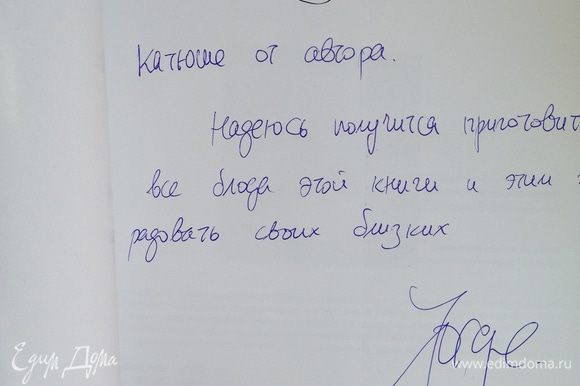 Катюше от автора.
Надеюсь получится приготовит
все блюда этой книги и этим
радовать своих близких
Едим Дома
www.edimdoma.ru